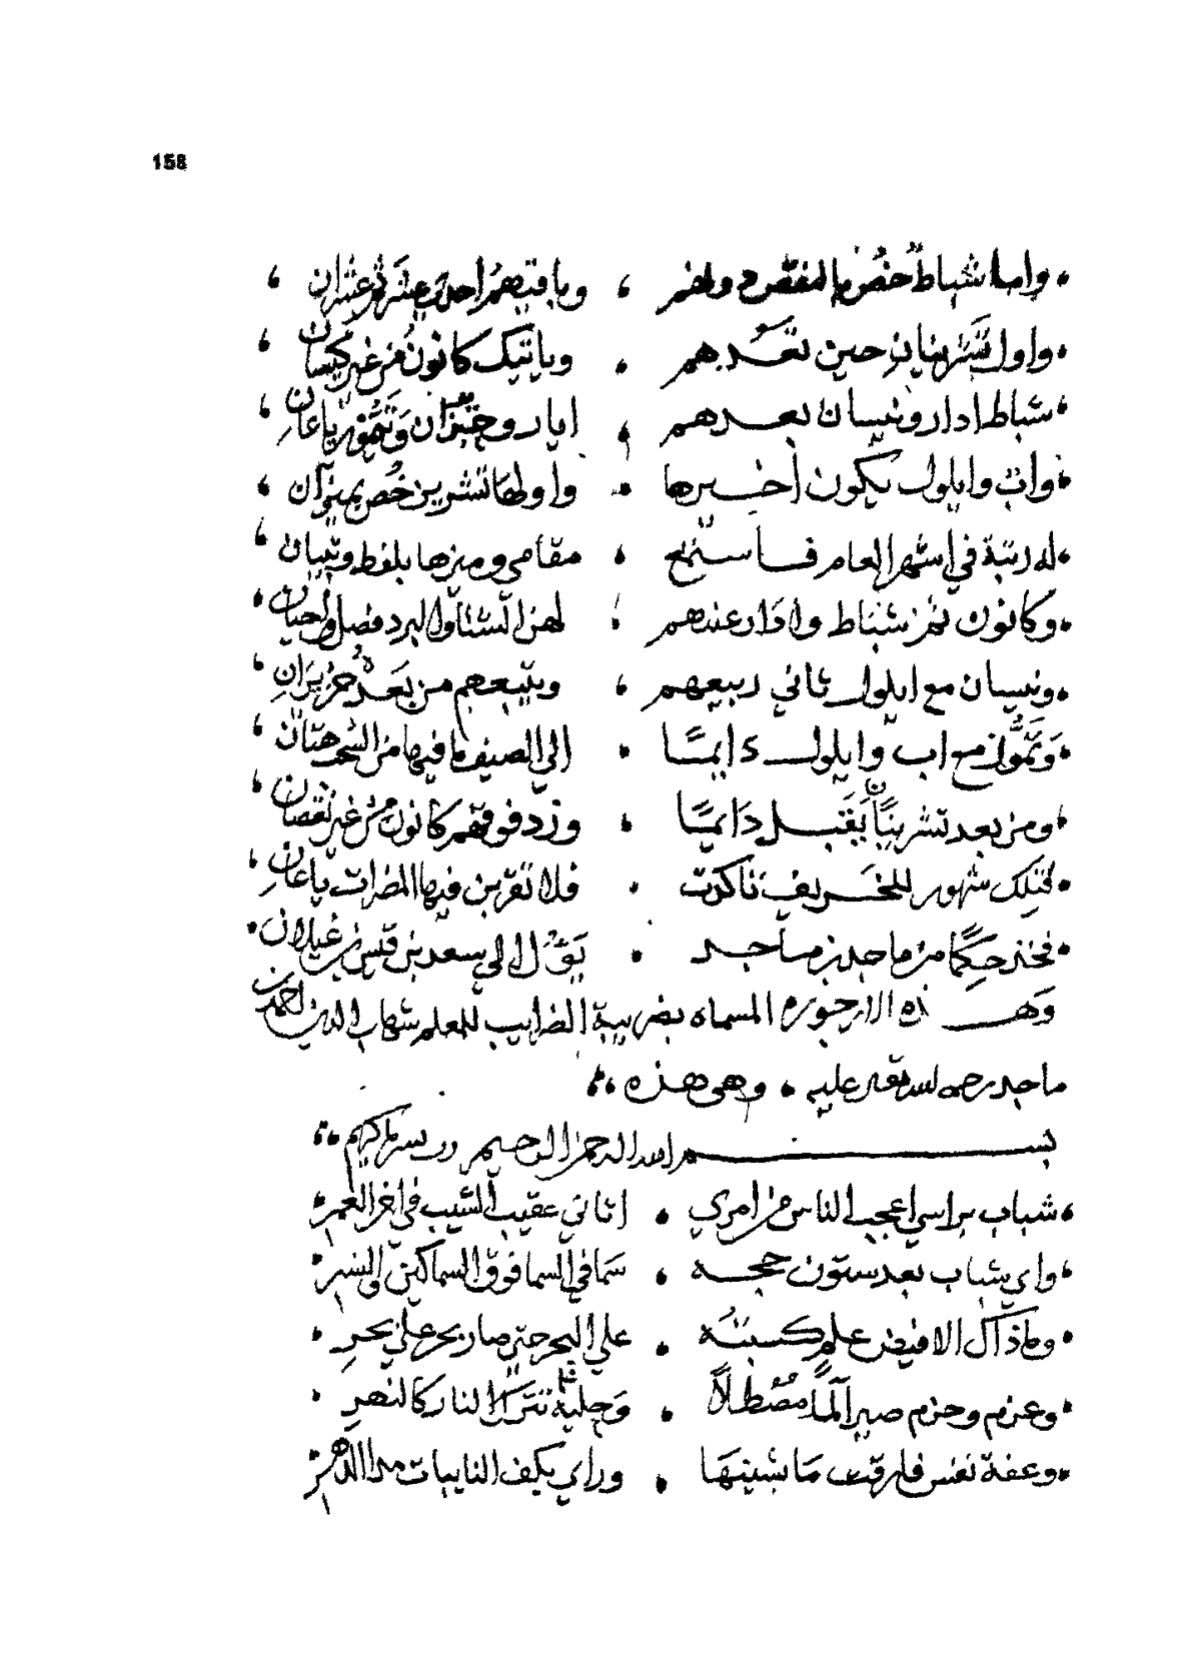 158
واما شباط خص بالنقص وباقيهم احدى عشر ثم عشران
واول تشرينان حين تعدهم وياتيك كانون من غير كيسان
شباط ادار ونيسان بعدهم ايار وحزيران وتموز يا عان
واب وايلول يكون اخيرها واولها تشرين خص بميزان
له رتبة في اشهر العام فاستمع مقامي وميزها بلفظ وتبيان
وكانون ثم شباط واذار عندهم لهن الشتا والبرد فصل واحيان
ونيسان مع ايلول ثاني ربيعهم ويتبعهم من بعد حزيران
وتموز مع اب وايلول دايمًا الى الصيف ما فيها من السحب هتان
ومن بعد تشرينان يقبل دايمًا وزد فوقهم كانون من غير نقصان
فتلك شهور للخريف تاكدت فلا تقربن فيها المضرات يا عان
فخذ حكما من ماجد بن ماجد يؤل الى سعد بن قيس بن غيلان
وهذه الارجوزه المسماه بضريبة الضرايب للمعلم شهاب الدين احمد بن
ماجد رحمة الله تعالى عليه وهى هذه
بسم الله الرحمن الرحيم رب يسر يا كريم
شباب براسي اعجب الناس من امري اتاني عقيب الشيب في اخر العمر
واي شباب بعد ستون حجه سما في السما فوق السماكين والنسر
وماذاك الا فيض علم كسبته على البحر حتى صار بحر على بحر
وعزم وحزم صير الماء مصطلًا وحلية تترك النار كالنهر
وعفة نفس فارقت ما يشينها وراي يكف النايبات مدا الدهر